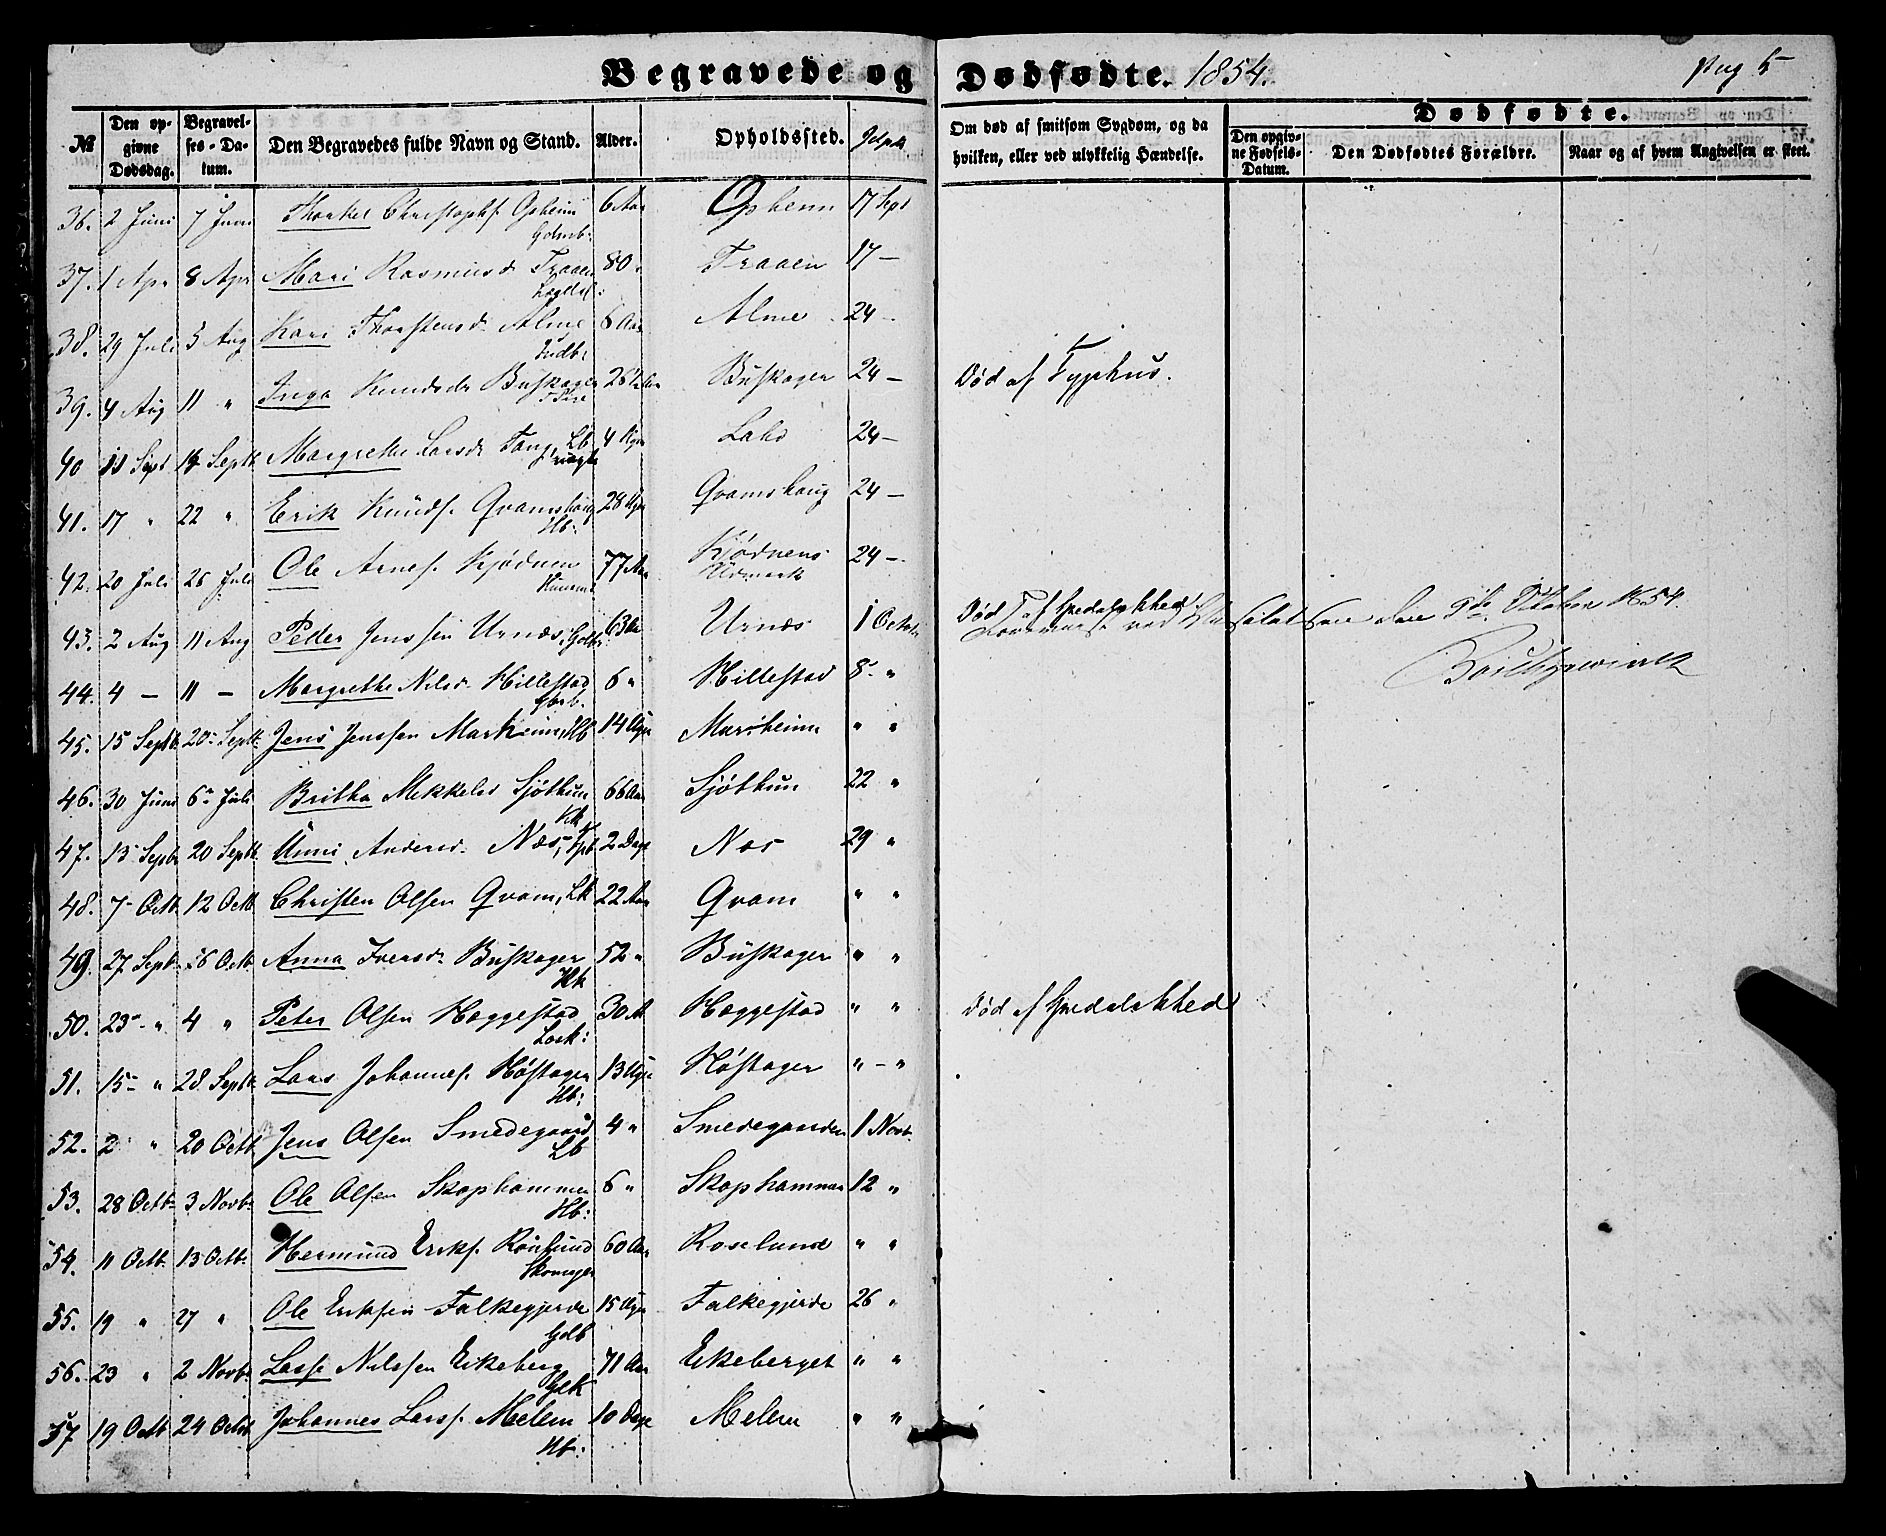 Begravede og Dødfødte. 1854. Pag 5
№ Den opgivne Dødsdag. Begravelses-Datum. Den Begravedes fulde Navn og Stand. Alder. Opholdssted. Om død af smitsom Sygdom, og da hvilken, eller ved ulykkelig Hændelse. Dødfødte. Den opgivne Fødsels-Datum. Den Dødfødtes Forældre. Naar og af hvem Angivelsen er skeet.
36. 2 Juni 7 Juni Christophs. Opheim 6 Aar Opheim 17 Spt
37. 1 Apr 8 Apr Mari Rasmusd. Traaen 80 " Traaen 17 —
38. 29 Juli 5 Aug Kari Thorstensd. Alme 6 Aar Alme 24 —
Indb:
39. 4 Aug 11 " Inga Knudsdr Buskager 26 Buskager 24 — Død af Typhus.
40 11 Sept 14 Septb Margrethe Larsdr Lb 4 Ugr 24 —
41. 17 " 22 " Erik Knuds. Qvamshaug 28 Ugr Qvamshaug 24 —
Hb:
42. 20 Juli 26 Juli Ole Arnes. Kjødnen 77 Aar Kjødnens 24 —
Udmark
43. 2 Aug 11 Aug Peder Jenssen Urnæs, Gdb: 63 Urnæs 1 Octob Død af Spedalskhed
den 9de Oktober 1854.
44. 4 — 11 — Margrethe Nilsd. Hillestad 6 " Hillestad 8 "
45. 15 Septb 20 Septb. Jens Jenssen Marheim, Hb 14 Ugr Marheim " "
46. 30 Juni 6 Juli Britha Mikkelsd Sjøthun 66 Aar Sjøthun 22 "
Kk
47. 13 Septb 20 Septb. Unni Andersd. Næs, 2 Dage Næs 29 "
48. 7 Octb. 12 Octb Christen Olsen Qvam, Lk 22 Aar Qvam " "
49. 27 Septb. 16 Octb Anna Iversdr. Buskager 52 " Buskager " "
Hk
50. 23 " 4 " Peter Olsen Hæggestad 30 A Hæggestad " " Død af Spedalskhed
51. 15 — " 28 Septb. Lars Johannes. Høstager 13 Ugr Høstager " — "
Hb:
52. 2 " 20 Octb. Jens Olsen Smedegaard 4 " Smedegaarden 1 Novb.
Lb
53. 28 Octb. 3 Novb. Ole Olsen Skaphammer 6 " Skaphammer 12 "
Hb:
54. 11 Octb. 13 Octb. Hermund Eriks. 60 Aar Roselund " "
55. 19 " 27 " Ole Eriksen Falkegjerde 15 Ugr Falkegjerde 26 "
Gdb
56. 23 " 2 Novb. Lasse Nilssen Eikeberg 71 Aar Eikeberget " "
57 19 Octb 24 Octb. Johannes Larss. Melem 10 Dage Melem " "
Hb: